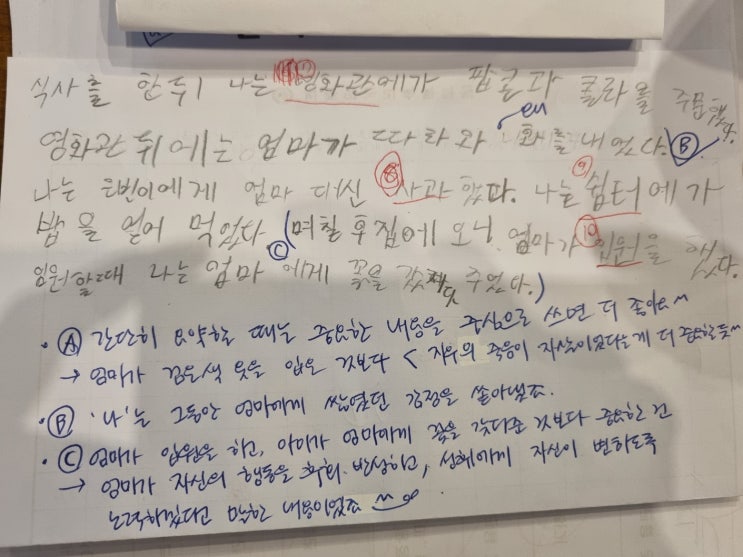 식사를 한 뒤 나는 영화관에가 팝콘과 콜라를 주문했다.
영화관 뒤에는 엄마가 따라와 화를 내었다. Ⓑ
나는 에게 엄마 대신 ⑧ 사과했다. 나는 ⑨ 쉼터에가
밥을 얻어 먹었다. Ⓒ (며칠 후 집에 오니, 엄마가 ⑩ 입원을 했다.
입원할때 나는 엄마에게 꽃을 갖다 주었다.)
· Ⓐ 간단히 요약할 때는 중요한 내용을 중심으로 쓰면 더 좋아요^^
→ 엄마가 검은색 옷을 입은 것보다 < 지우의 죽음이 자살이었다는게 더 중요할듯^^
· Ⓑ '나'는 그동안 엄마에게 쌓였던 감정을 쏟아냈죠.
· Ⓒ 엄마가 입원을 하고, 아이가 엄마에게 꽃을 갖다준 것보다 중요한 건
→ 엄마가 자신의 행동을 후회·반성하고, 에게 자신이 변하도록
노력하겠다고 말한 내용이었죠